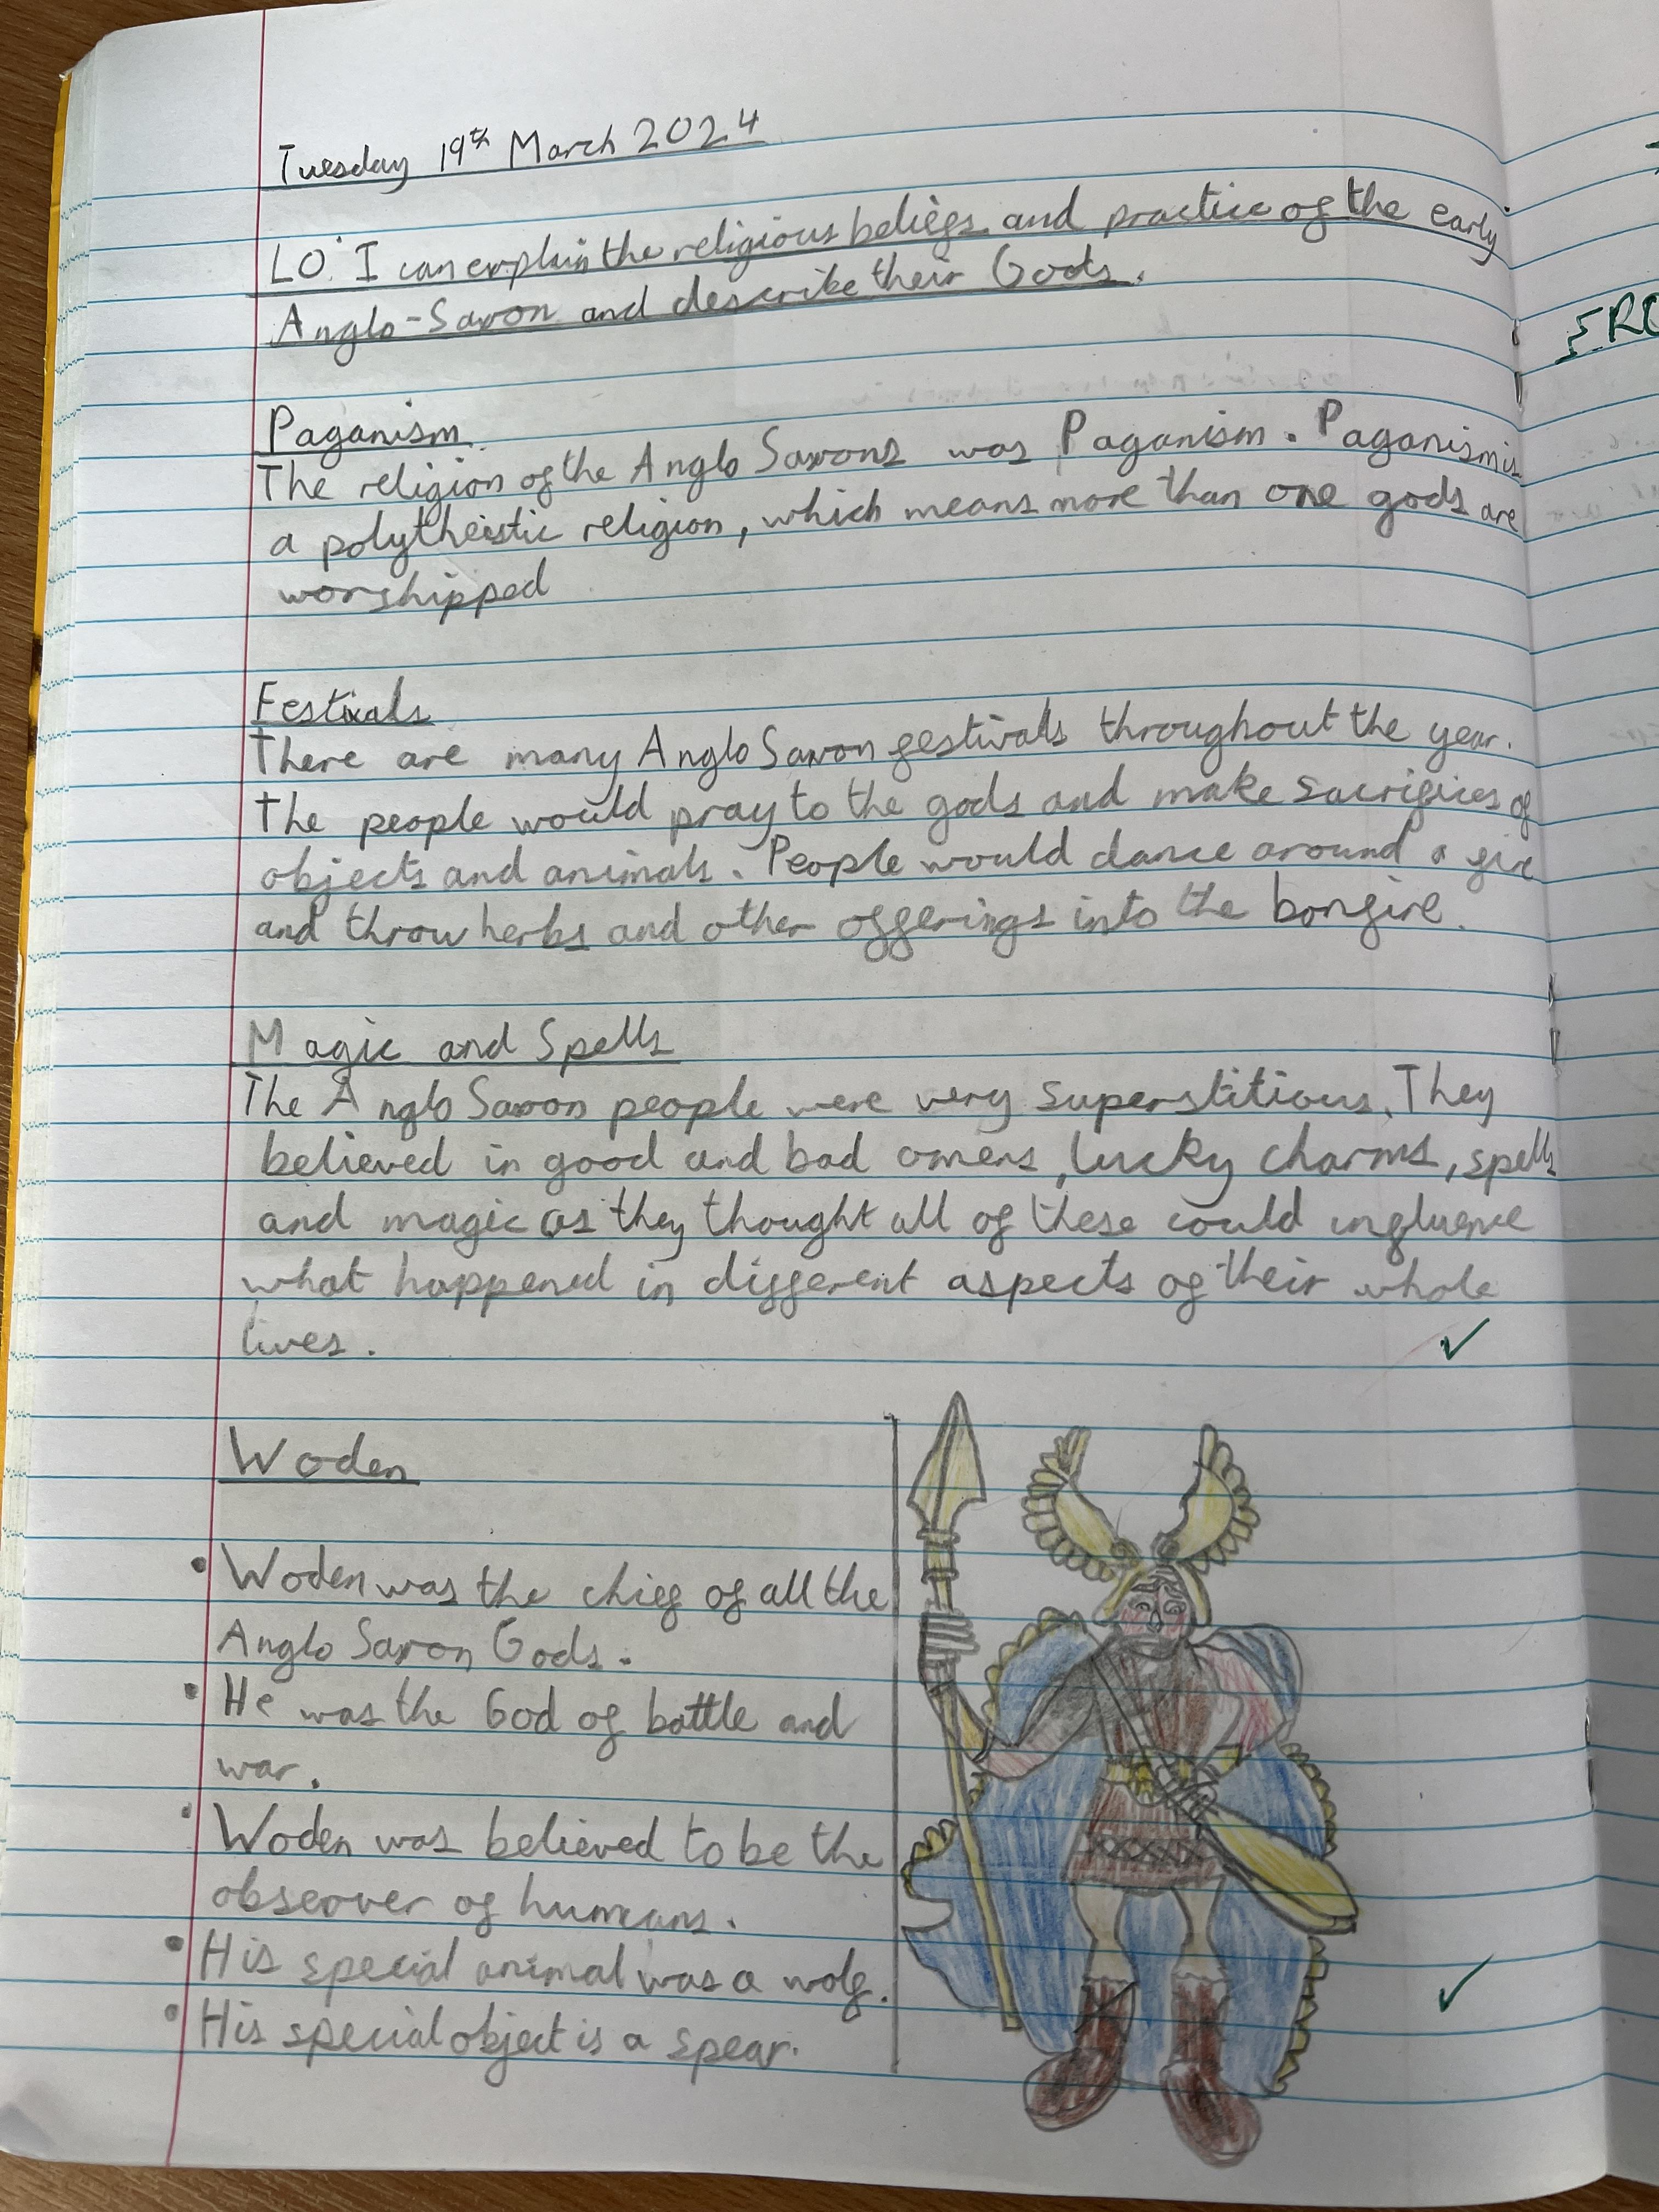 Tuesday 19th March 2024
LO: I can explain the religious beliefs and practice of the early
Anglo-Saxon and describe their Gods.
Paganism
The religion of the Anglo Saxons was Paganism. Paganism is
a polytheistic religion, which means more than one gods are
worshipped
Festivals
There are many Anglo Saxon festivals throughout the year.
The people would pray to the gods and make sacrifices of
objects and animals. People would dance around a fire
and throw herbs and other offerings into the bonfire.
Magic and Spells
The Anglo Saxon people were very superstitious. They
believed in good and bad omens, lucky charms, spells
and magic as they thought all of these could influence
what happened in different aspects of their whole
lives.
Woden
• Woden was the chief of all the
Anglo Saxon Gods.
• He was the God of battle and
war.
• Woden was believed to be the
obseover of humans.
• His special animal was a wolf.
• His special object is a spear.